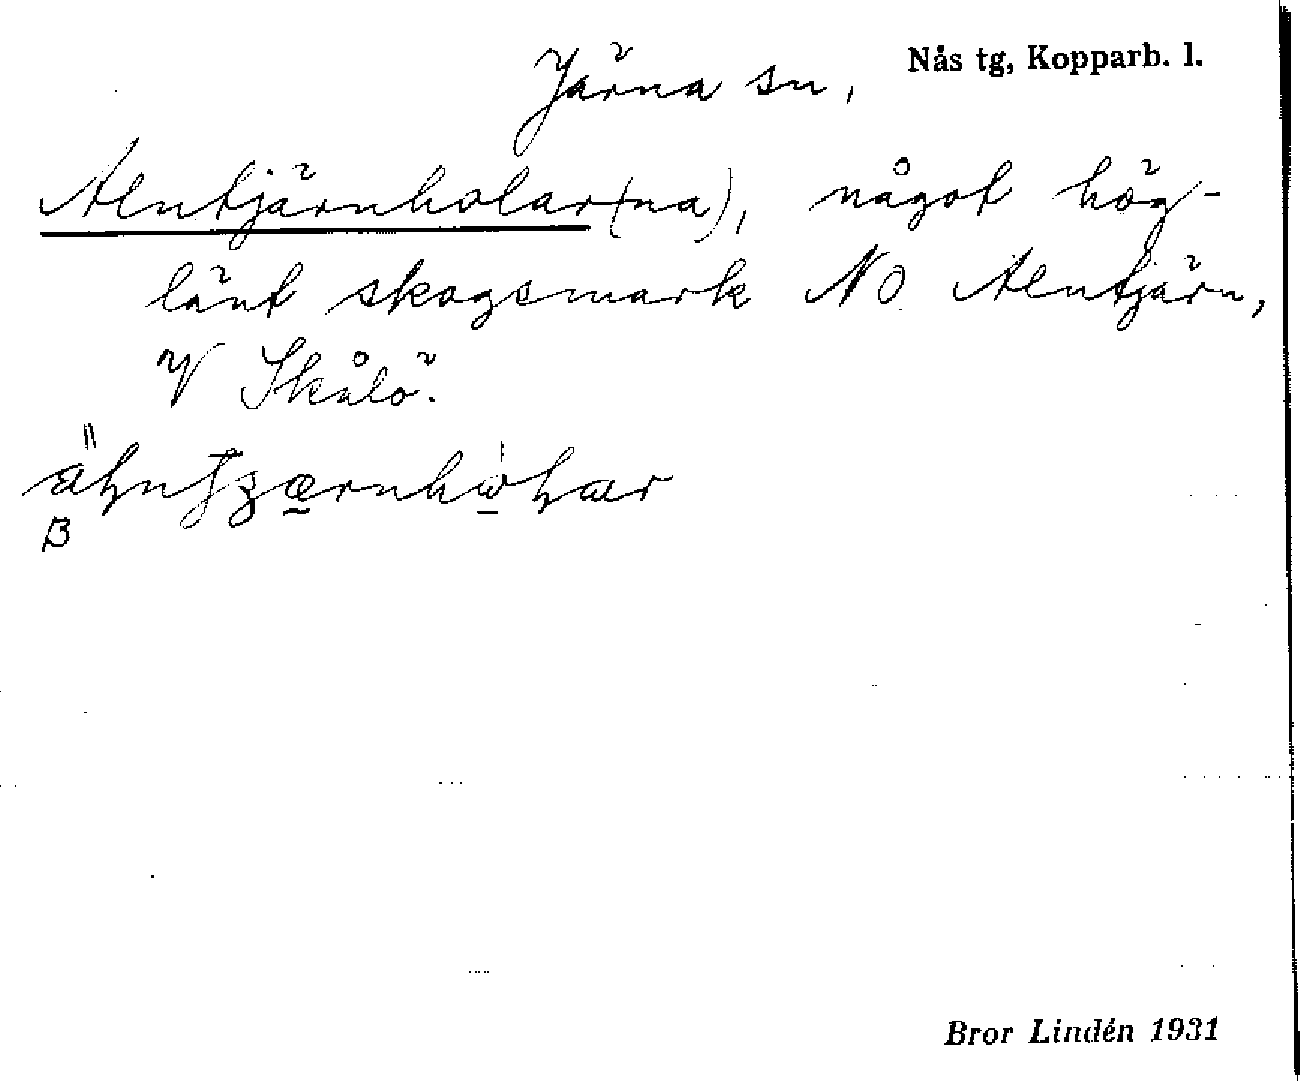 Järna sn, Nås tg, Kopparb. l.
Alntjärnholar(na), något hög-
länt skogsmark NO Alntjärn,
V Skålö.
B
Bror Lindén 1931